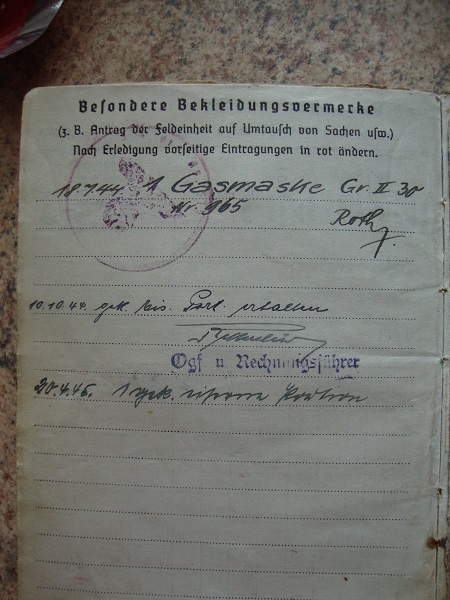 Besondere Bekleidungsvermerke
(z. B. Antrag der Feldeinheit auf Umtausch von Sachen usw.)
Nach Erledigung vorseitige Eintragungen in rot ändern.
18.7.44 1 Gasmaske Gr. II 30
Nr. 965
Roth
10.10.44. gek. Eis. Port. erhalten
Ogf u Rechnungsführer
20.4.45. 1 gek. eiserne Portion